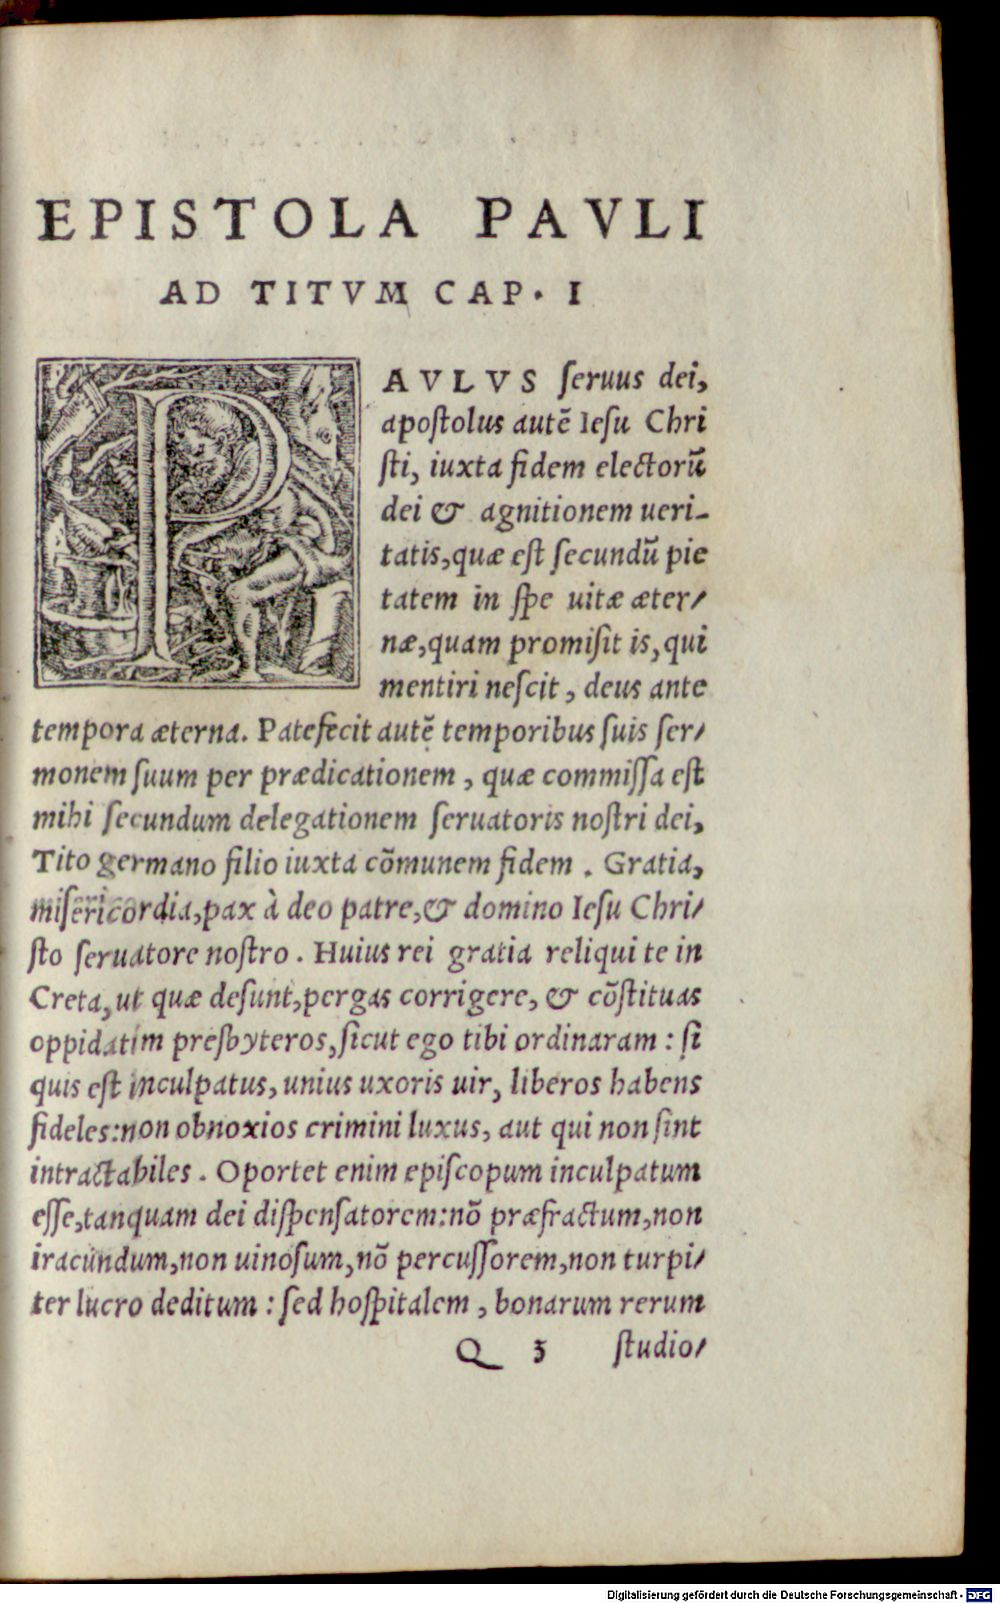 EPISTOLA PAVLI
AD TITVM CAP. I
PAVLVS ſeruus dei,
apoſtolus autẽ Ieſu Chri
ſti, iuxta fidem electorũ
dei & agnitionem ueri-
tatis, quæ eſt ſecundũ pie
tatem in ſpe uitæ æter/
næ, quam promiſit is, qui
mentiri neſcit, deus ante
tempora æterna. Patefecit autẽ temporibus ſuis ſer/
monem ſuum per prædicationem, quæ commiſſa eſt
mihi ſecundum delegationem ſeruatoris noſtri dei,
Tito germano filio iuxta cõmunem fidem. Gratia,
miſericordia, pax à deo patre, & domino Ieſu Chri/
ſto ſeruatore noſtro. Huius rei gratia reliqui te in
Creta, ut quæ deſunt, pergas corrigere, & cõſtituas
oppidatim presbyteros, ſicut ego tibi ordinaram: ſi
quis eſt inculpatus, unius uxoris uir, liberos habens
fideles: non obnoxios crimini luxus, aut qui non ſint
intractabiles. Oportet enim epiſcopum inculpatum
eſſe, tanquam dei diſpenſatorem: nõ præfractum, non
iracundum, non uinoſum, nõ percuſſorem, non turpi/
ter lucro deditum: ſed hoſpitalem, bonarum rerum
Q 3 ſtudio/
Digitalisierung gefördert durch die Deutsche Forschungsgemeinschaft - DFG